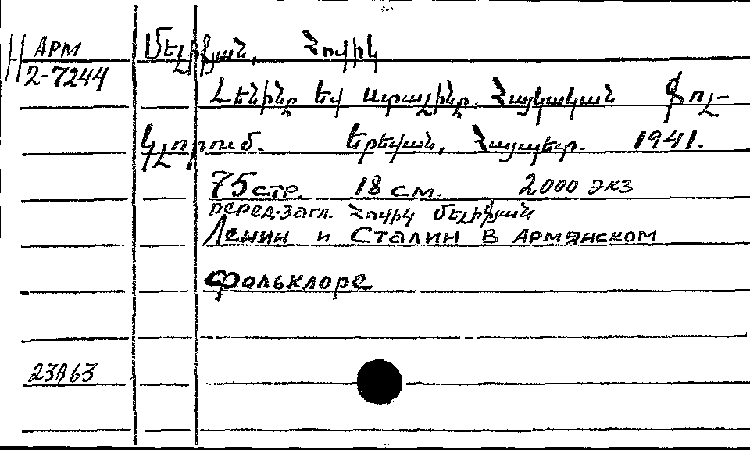 АРМ
2-7244
Մելիքյան, Հովիկ
Լենինը եվ Ստալինը Հայկական Ֆոլ-
կլորում. Երեվան, Հայպետհր. 1941.
75 стр. 18 см. 2000 экз
перед.загл. Հովիկ Մելիքյան
Ленин и Сталин в армянском
фольклоре
23963